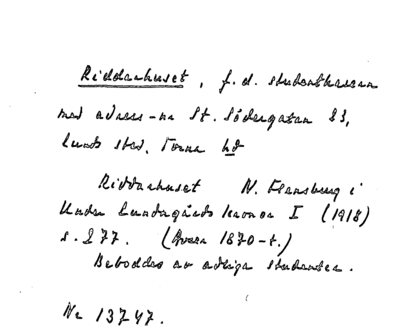 Riddarhuset, f.d. studentkasern
med adress-nr St. Södergatan 23,
Lunds stad, Torna hd
Riddarhuset N. Flensburg i
Under Lundagårds kronor I (1918)
s. 277. (Övers 1870-t.)
Beboddes av adliga studenter.
Nr 13747.